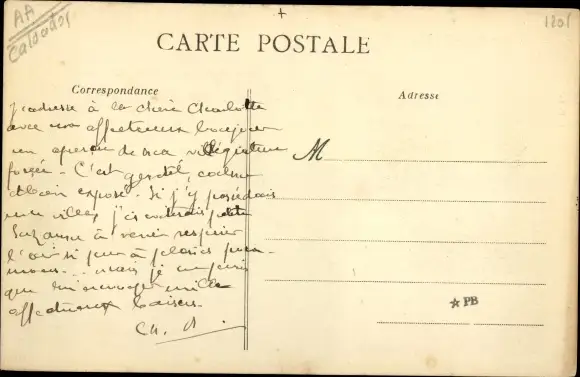 AA
Calvados
1201
CARTE POSTALE
Correspondance
Adresse
J'adresse à la chère Charlotte
avec mon affectueux bonjour
un aperçu de ma villégiature
forcée. C'est gentil,
bien exposé. Si j'y possédais
une villa, j'inviterais petite
Suzanne à venir respirer
l'air si pur à pleins pou-
mons... mais je
que lui envoyer mille
affectueux baisers.
Ch. A.
M
PB